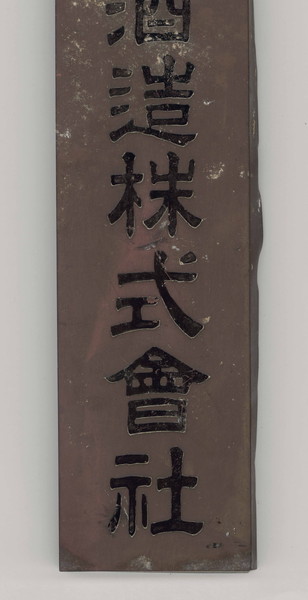 酒造株式會社